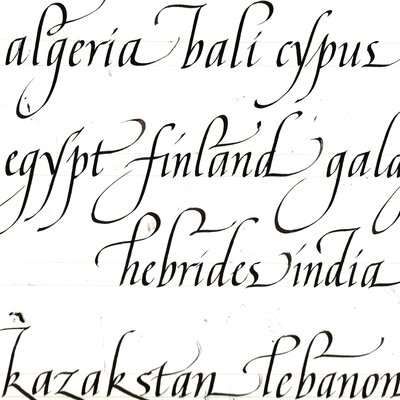 algeria bali cypus
egypt finland gala
hebrides india
kazakstan lebanon